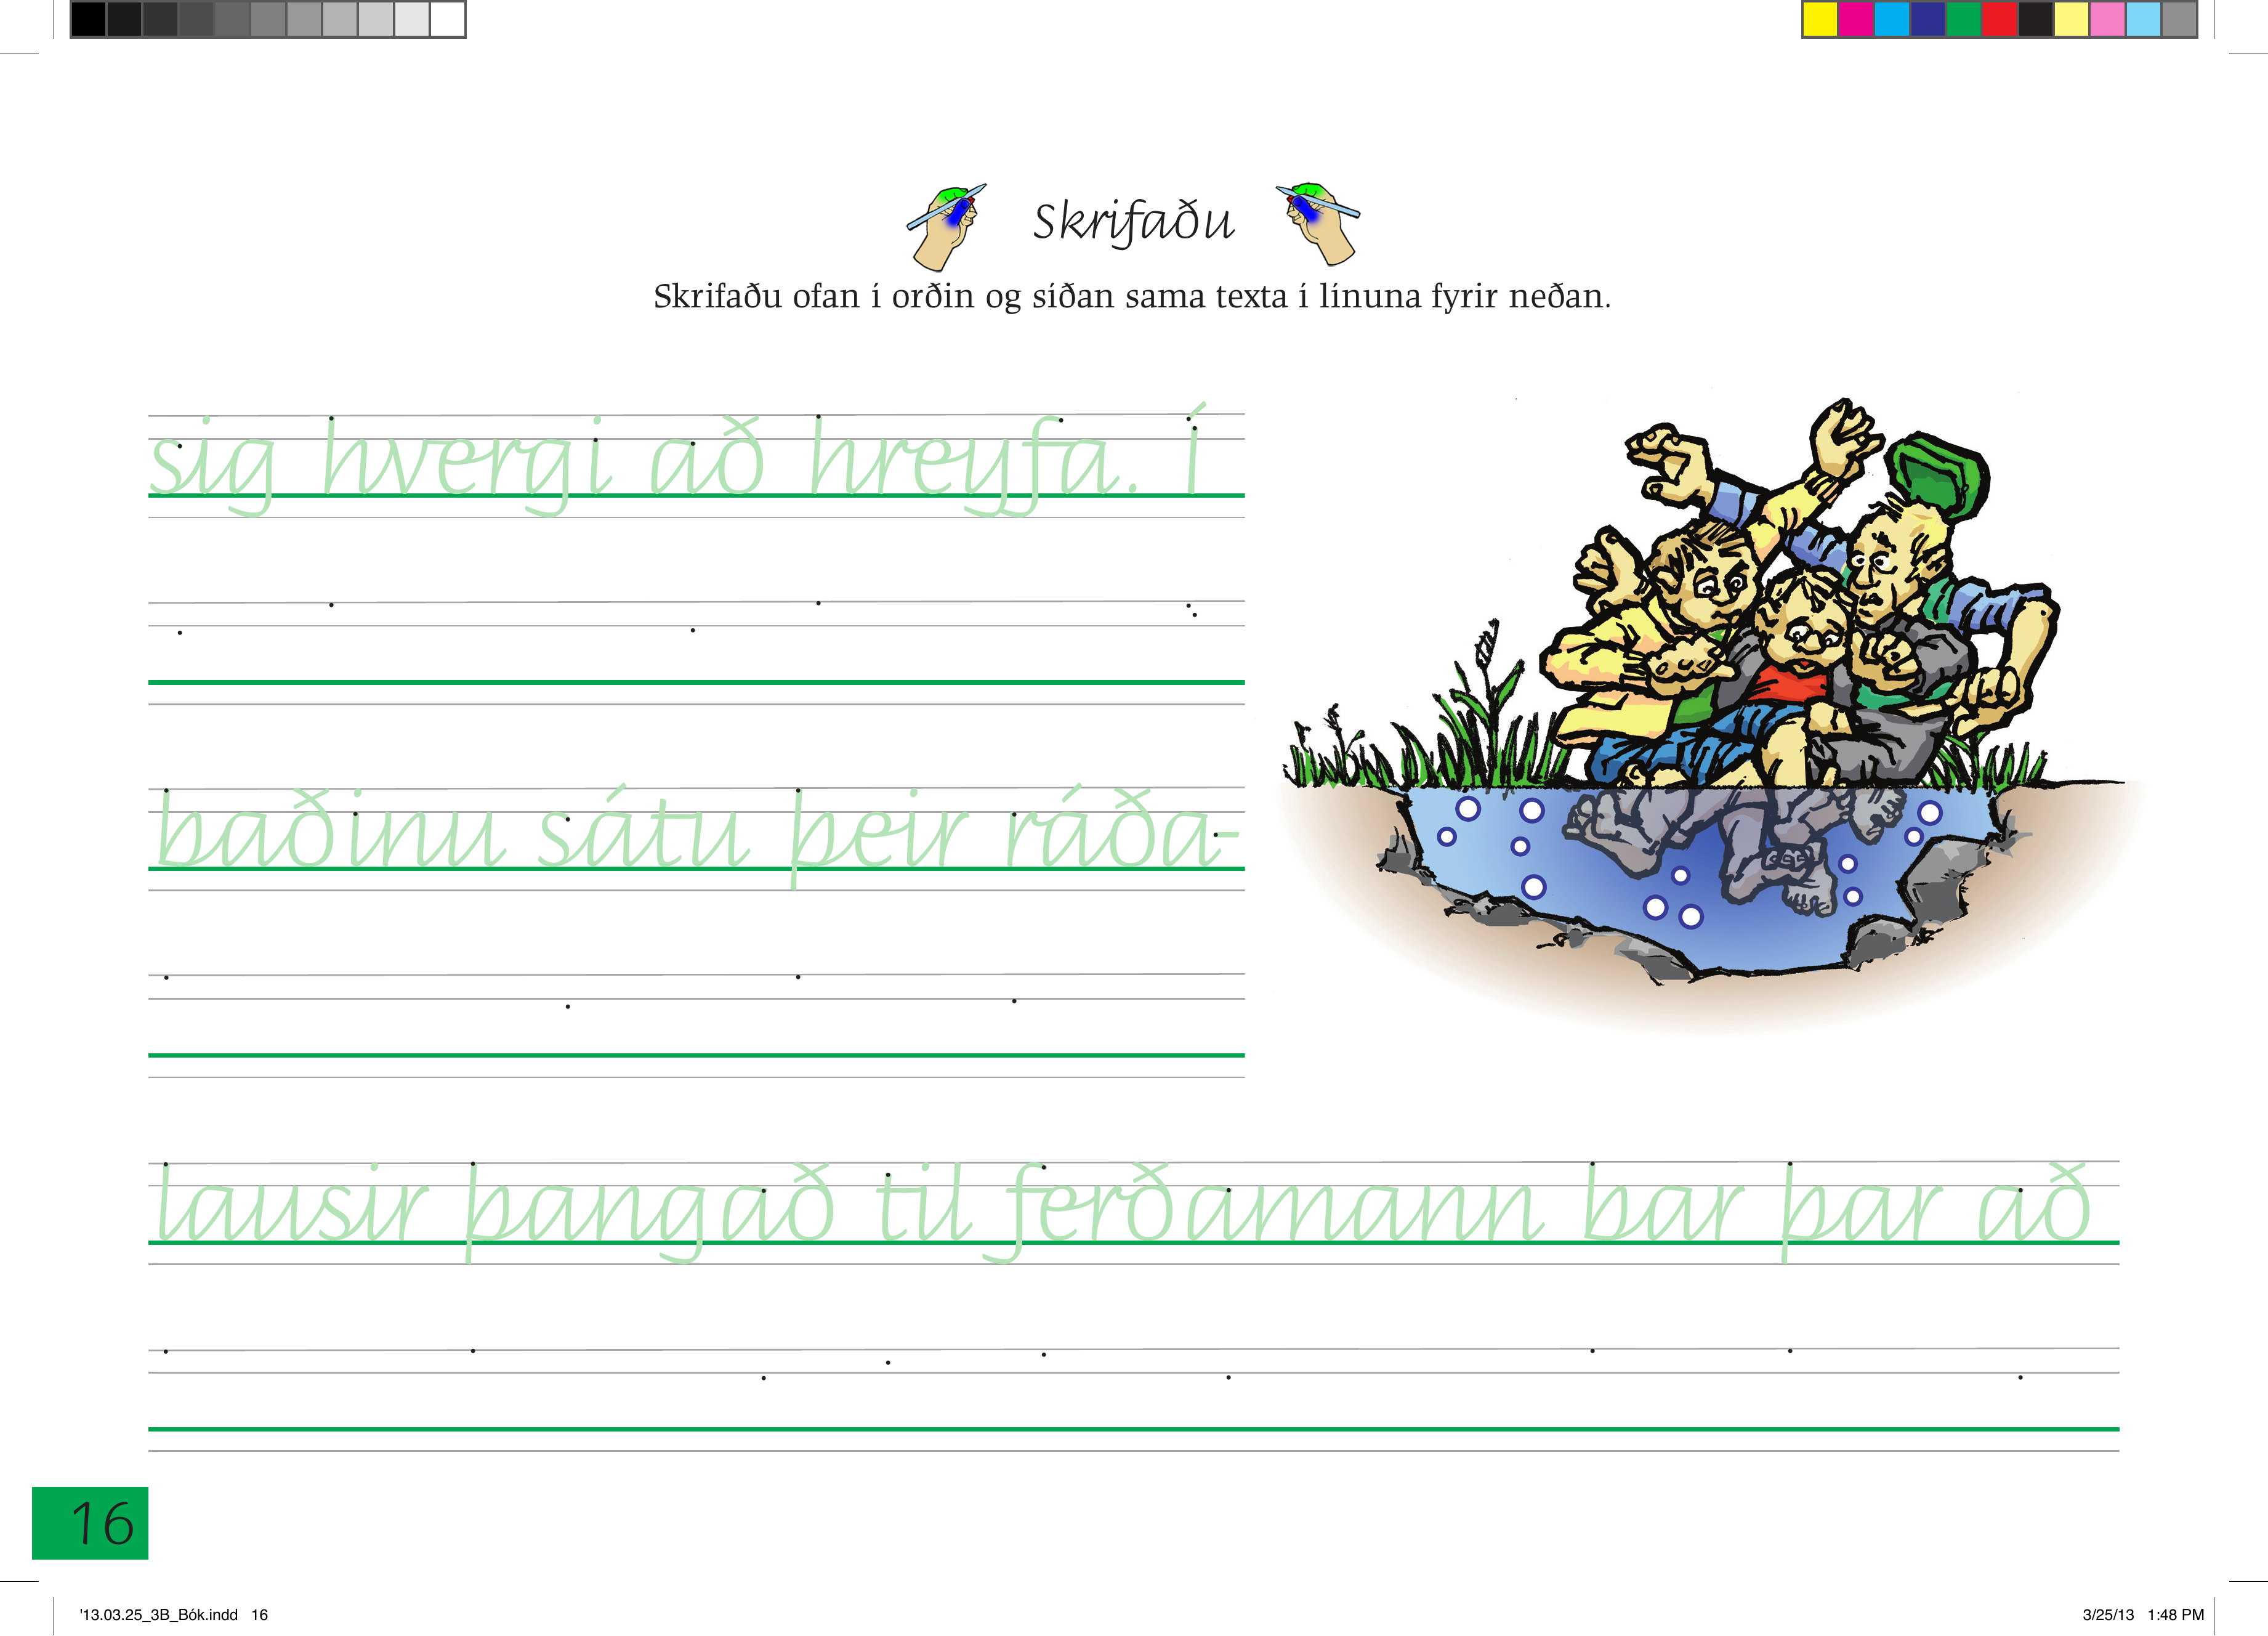 Skrifaðu
Skrifaðu ofan í orðin og síðan sama texta í línuna fyrir neðan.
sig hvergi að hreyfa. Í
baðinu sátu þeir ráða-
lausir þangað til ferðamann bar þar að
16
'13.03.25_3B_Bók.indd 16
3/25/13 1:48 PM